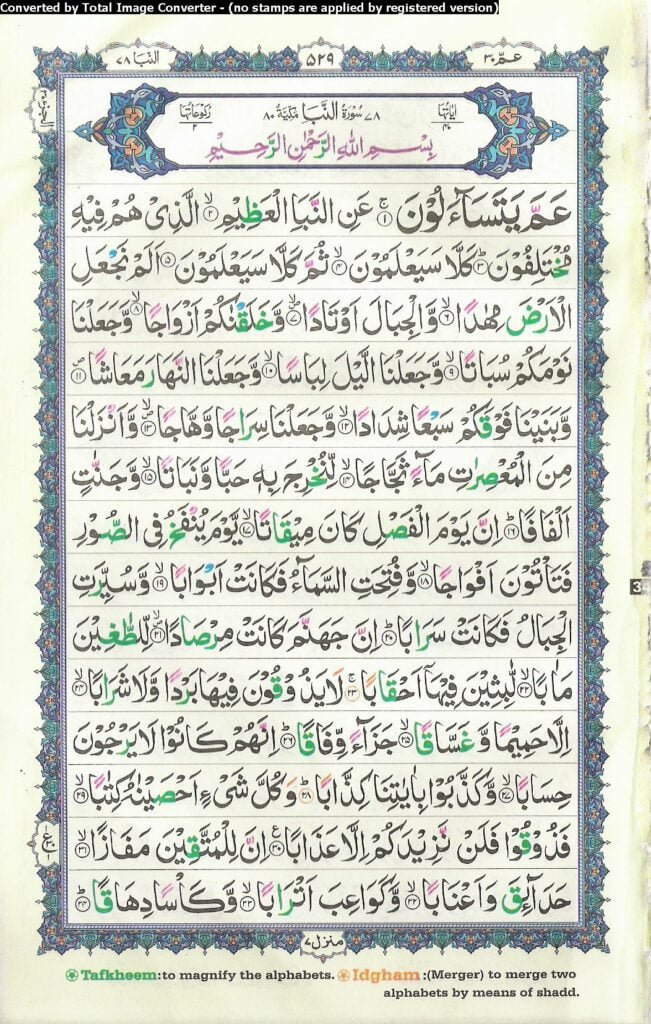 Converted by Total Image Converter - (no stamps are applied by registered version)
عمّ ٣٠
٥٢٩
النبا ٧٨
اٰيَاتُهَا ٤٠
٧٨ سُوْرَةُ النَّبَاِ مَكِّيَّةٌ ٨٠
رُكُوْعَاتُهَا ٢
بِسْمِ اللّٰهِ الرَّحْمٰنِ الرَّحِيْمِ
عَمَّ يَتَسَآءَلُوْنَ ۚ﴿١﴾ عَنِ النَّبَاِ الْعَظِيْمِ ۙ﴿٢﴾ الَّذِىْ هُمْ فِيْهِ
مُخْتَلِفُوْنَ ؕ﴿٣﴾ كَلَّا سَيَعْلَمُوْنَ ۙ﴿٤﴾ ثُمَّ كَلَّا سَيَعْلَمُوْنَ ﴿٥﴾ اَلَمْ نَجْعَلِ
الْاَرْضَ مِهٰدًا ۙ﴿٦﴾ وَّالْجِبَالَ اَوْتَادًا ۙ﴿٧﴾ وَّخَلَقْنٰكُمْ اَزْوَاجًا ۙ﴿٨﴾ وَّجَعَلْنَا
نَوْمَكُمْ سُبَاتًا ۙ﴿٩﴾ وَّجَعَلْنَا الَّيْلَ لِبَاسًا ۙ﴿١٠﴾ وَّجَعَلْنَا النَّهَارَ مَعَاشًا ۪﴿١١﴾
وَّبَنَيْنَا فَوْقَكُمْ سَبْعًا شِدَادًا ۙ﴿١٢﴾ وَّجَعَلْنَا سِرَاجًا وَّهَّاجًا ۪ۙ﴿١٣﴾ وَّاَنْزَلْنَا
مِنَ الْمُعْصِرٰتِ مَآءً ثَجَّاجًا ۙ﴿١٤﴾ لِّنُخْرِجَ بِهٖ حَبًّا وَّنَبَاتًا ۙ﴿١٥﴾ وَّجَنّٰتٍ
اَلْفَافًا ؕ﴿١٦﴾ اِنَّ يَوْمَ الْفَصْلِ كَانَ مِيْقَاتًا ۙ﴿١٧﴾ يَّوْمَ يُنْفَخُ فِى الصُّوْرِ
فَتَاْتُوْنَ اَفْوَاجًا ۙ﴿١٨﴾ وَّفُتِحَتِ السَّمَآءُ فَكَانَتْ اَبْوَابًا ۙ﴿١٩﴾ وَّسُيِّرَتِ
الْجِبَالُ فَكَانَتْ سَرَابًا ؕ﴿٢٠﴾ اِنَّ جَهَنَّمَ كَانَتْ مِرْصَادًا ۪ۙ﴿٢١﴾ لِّلطَّٰغِيْنَ
مَاٰبًا ۙ﴿٢٢﴾ لّٰبِثِيْنَ فِيْهَاۤ اَحْقَابًا ۚ﴿٢٣﴾ لَا يَذُوْقُوْنَ فِيْهَا بَرْدًا وَّلَا شَرَابًا ۙ﴿٢٤﴾
اِلَّا حَمِيْمًا وَّغَسَّاقًا ۙ﴿٢٥﴾ جَزَآءً وِّفَاقًا ؕ﴿٢٦﴾ اِنَّهُمْ كَانُوْا لَا يَرْجُوْنَ
حِسَابًا ۙ﴿٢٧﴾ وَّكَذَّبُوْا بِاٰيٰتِنَا كِذَّابًا ؕ﴿٢٨﴾ وَكُلَّ شَىْءٍ اَحْصَيْنٰهُ كِتٰبًا ۙ﴿٢٩﴾
فَذُوْقُوْا فَلَنْ نَّزِيْدَكُمْ اِلَّا عَذَابًا ﴿٣٠﴾ اِنَّ لِلْمُتَّقِيْنَ مَفَازًا ۙ﴿٣١﴾
حَدَآئِقَ وَاَعْنَابًا ۙ﴿٣٢﴾ وَّكَوَاعِبَ اَتْرَابًا ۙ﴿٣٣﴾ وَّكَاْسًا دِهَاقًا ؕ﴿٣٤﴾
منزل ٧
Tafkheem:to magnify the alphabets. Idgham:(Merger) to merge two
alphabets by means of shadd.